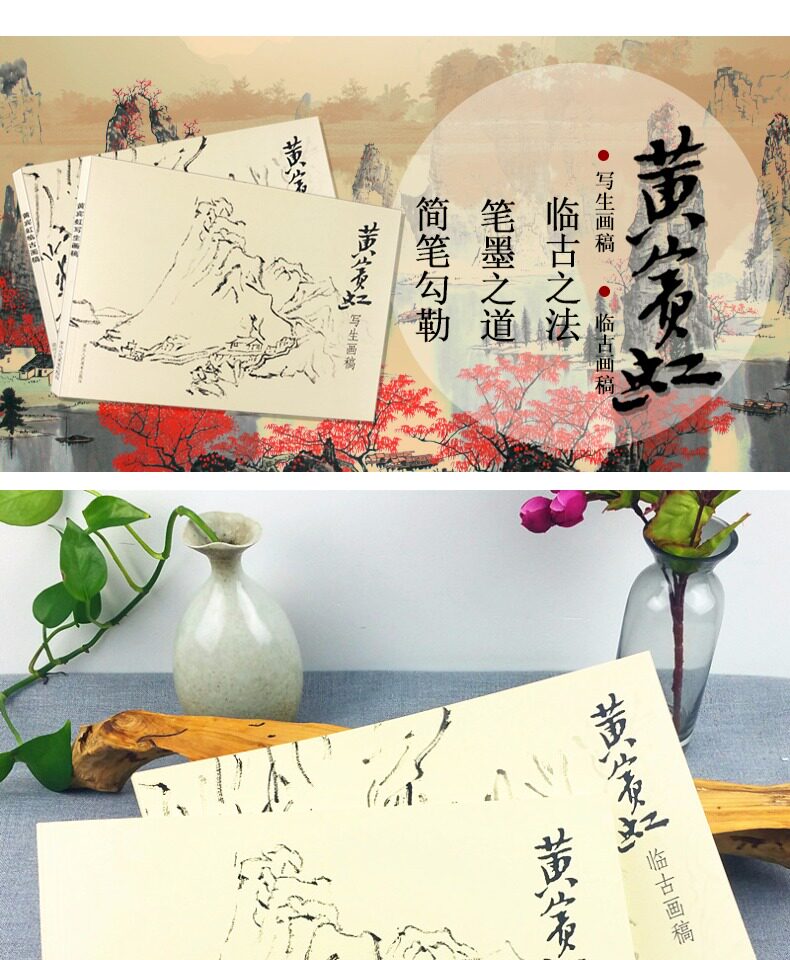 黄宾虹
写生画稿
临古画稿
临古之法
笔墨之道
简笔勾勒
黄宾
黄宾虹临古画稿
黄宾虹写生画稿
黄宾虹
写生画稿
黄宾虹
临古画稿
黄宾